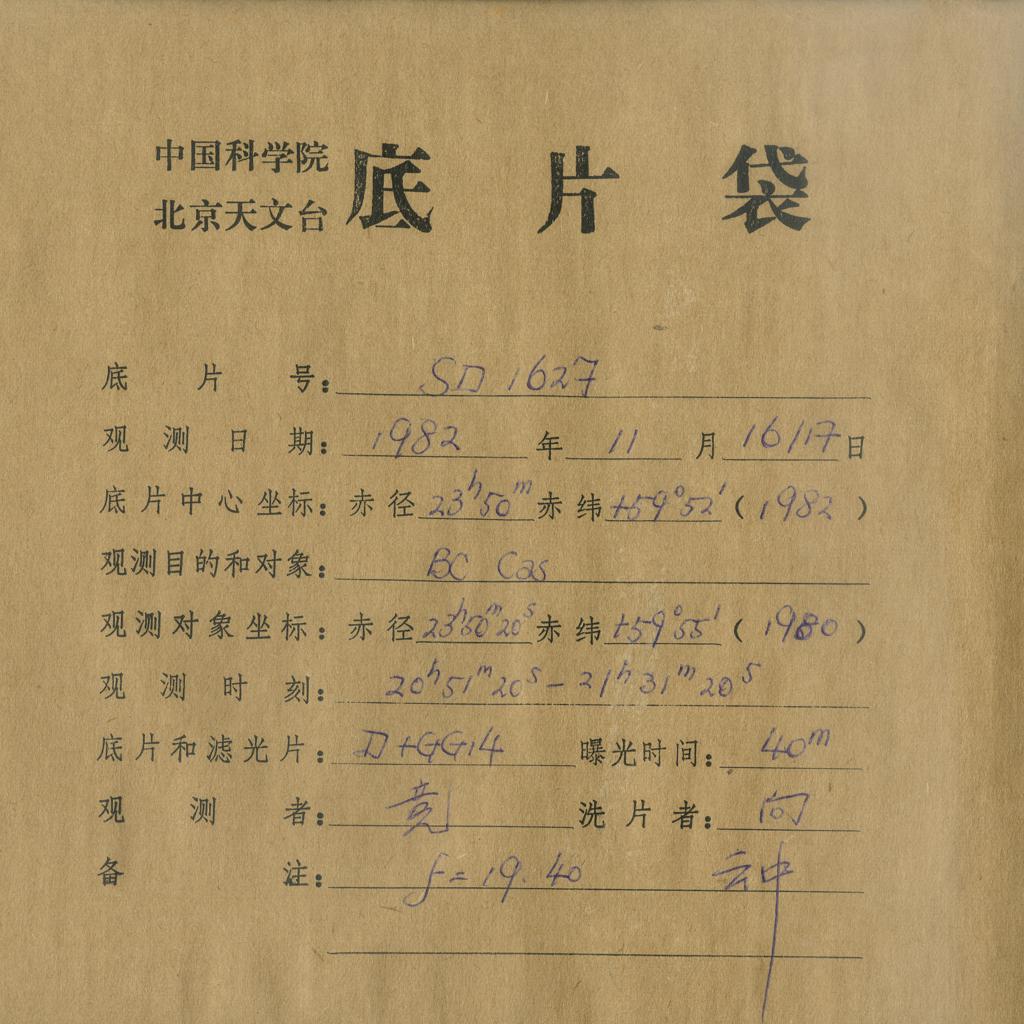 中国科学院
北京天文台
底片袋
底片号：SD 1627
观测日期：1982年11月16/17日
底片中心坐标：赤径23ʰ50ᵐ赤纬+59°52′（1982）
观测目的和对象：BC Cas
观测对象坐标：赤径23ʰ50ᵐ20ˢ赤纬+59°55′（1980）
观测时刻：20ʰ51ᵐ20ˢ - 21ʰ31ᵐ20ˢ
底片和滤光片：D+GG14 曝光时间：40ᵐ
观测者：竟 洗片者：向
备注：f = 19.40 云中